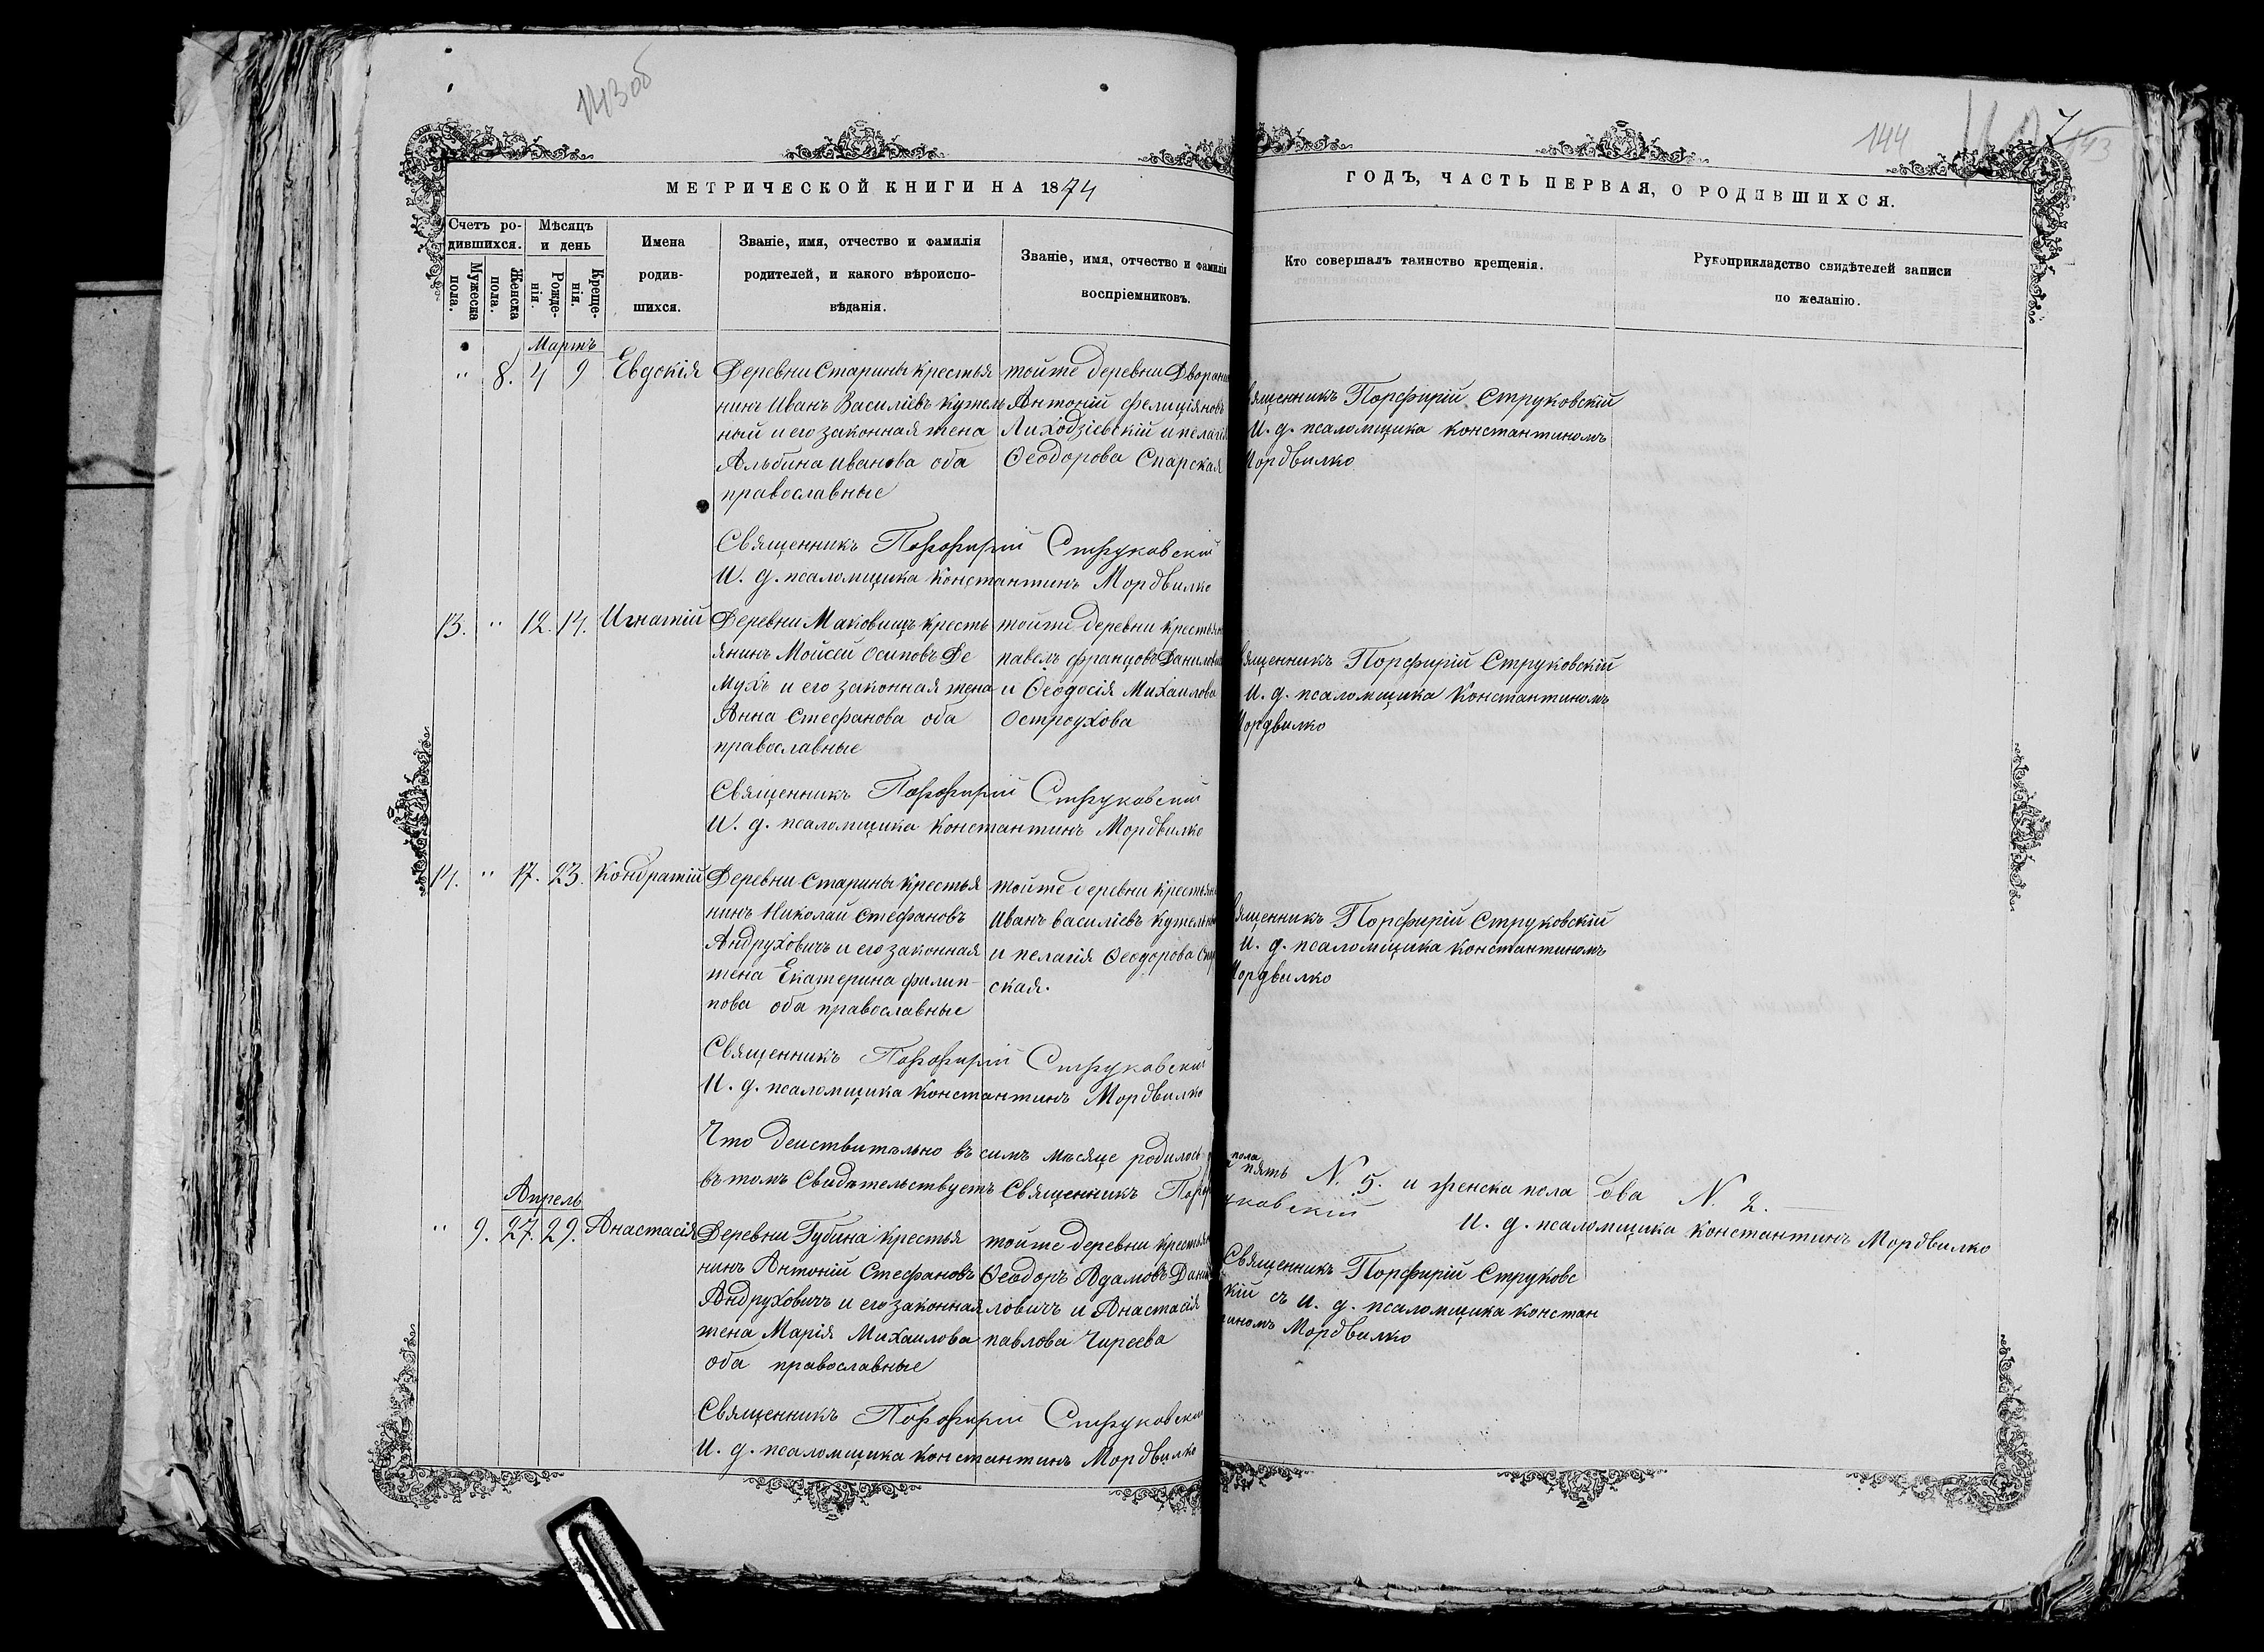 143об
144
7
143
МЕТРИЧЕСКОЙ КНИГИ НА 1874
ГОДЪ, ЧАСТЬ ПЕРВАЯ, О РОДИВШИХСЯ.
Счетъ ро-
дившихся.
Мужеска
пола.
Женска
пола.
Мѣсяцъ
и день
Рожде-
нія.
Креще-
нія.
Имена
родив-
шихся.
Званіе, имя, отчество и фамилія
родителей, и какого вѣроиспо-
вѣданія.
Званіе, имя, отчество и фамилія
воспріемниковъ.
Кто совершалъ таинство крещенія.
Рукоприкладство свидѣтелей записи
по желанію.
Мартъ
" 8. 4 9 Евдокія
Деревни Старины крестья
нинъ Иванъ Василіевъ Кужель
ный и его законная жена
Альбина Иванова оба
православные
тойже деревни Дворян
Антоній Фелиціяновъ
Лиходзіевскій и пелагія
Ѳеодорова Спарская
вященникъ Порфирій Струковскій
И. д. псаломщика Константиномъ
Мордвилко
Священникъ Порфирій Струковскій
И. д. псаломщика Константинъ Мордвилко
13. " 12. 14. Игнатій
Деревни Маковищъ кресть
янинъ Мойсей Осиповъ Де
мухъ и его законная жена
Анна Стефанова оба
православные
тойже деревни крестьян
павелъ францовъ Данилович
и Ѳеодосія Михаилова
Остроухова
вященникъ Порфирій Струковскій
И. д. псаломщика Константиномъ
Мордвилко
Священникъ Порфирій Струковскій
И. д. псаломщика Константинъ Мордвилко
14. " 17. 23. Кондратій
Деревни Старины крестья
нинъ Николай Стефановъ
Андруховичъ и его законная
жена Екатерина филип-
пова оба православные
тойже деревни крестьян
Иванъ Василіевъ Кужельн
и пелагія Ѳеодорова Спар
ская.
вященникъ Порфирій Струковскій
И. д. псаломщика Константиномъ
Мордвилко
Священникъ Порфирій Струковскій
И. д. псаломщика Константинъ Мордвилко
Что действительно въ симъ мѣсяце родилось пола пять N. 5. и женска пола два N. 2.
въ томъ Свидѣтельствуетъ Священникъ Порф уковскій
И. д. псаломщика Константинъ Мордвилко
Апрель
" 9. 27. 29. Анастасія
Деревни Губина крестья
нинъ Антоній Стефановъ
Андруховичъ и его законная
жена Марія Михаилова
оба православные
тойже деревни крестьян
Ѳеодоръ Адамовъ Дани
ловичъ и Анастасія
павлова Чиреева
Священникъ Порфирій Струковс
кій съ И. д. псаломщика Констан
тиномъ Мордвилко
Священникъ Порфирій Струковскій
И. д. псаломщика Константинъ Мордвилко